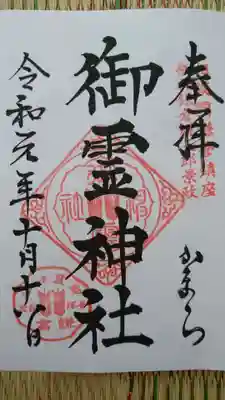 奉拝
かまくら
御霊神社
令和元年十月十八日